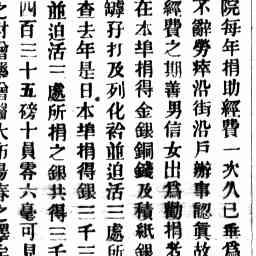 院每年捐助經費一次久已垂爲
不辭勞瘁沿街沿戶辦事認眞故
經費之期善男信女出爲勸捐者
在本埠捐得金銀銅錢及積紙銀
罅孖打及列化衿並迫活三處所
查去年是日本埠捐得銀三千三
並迫活三處所捐之銀共得三千
四百三十五磅十員零六毫可見